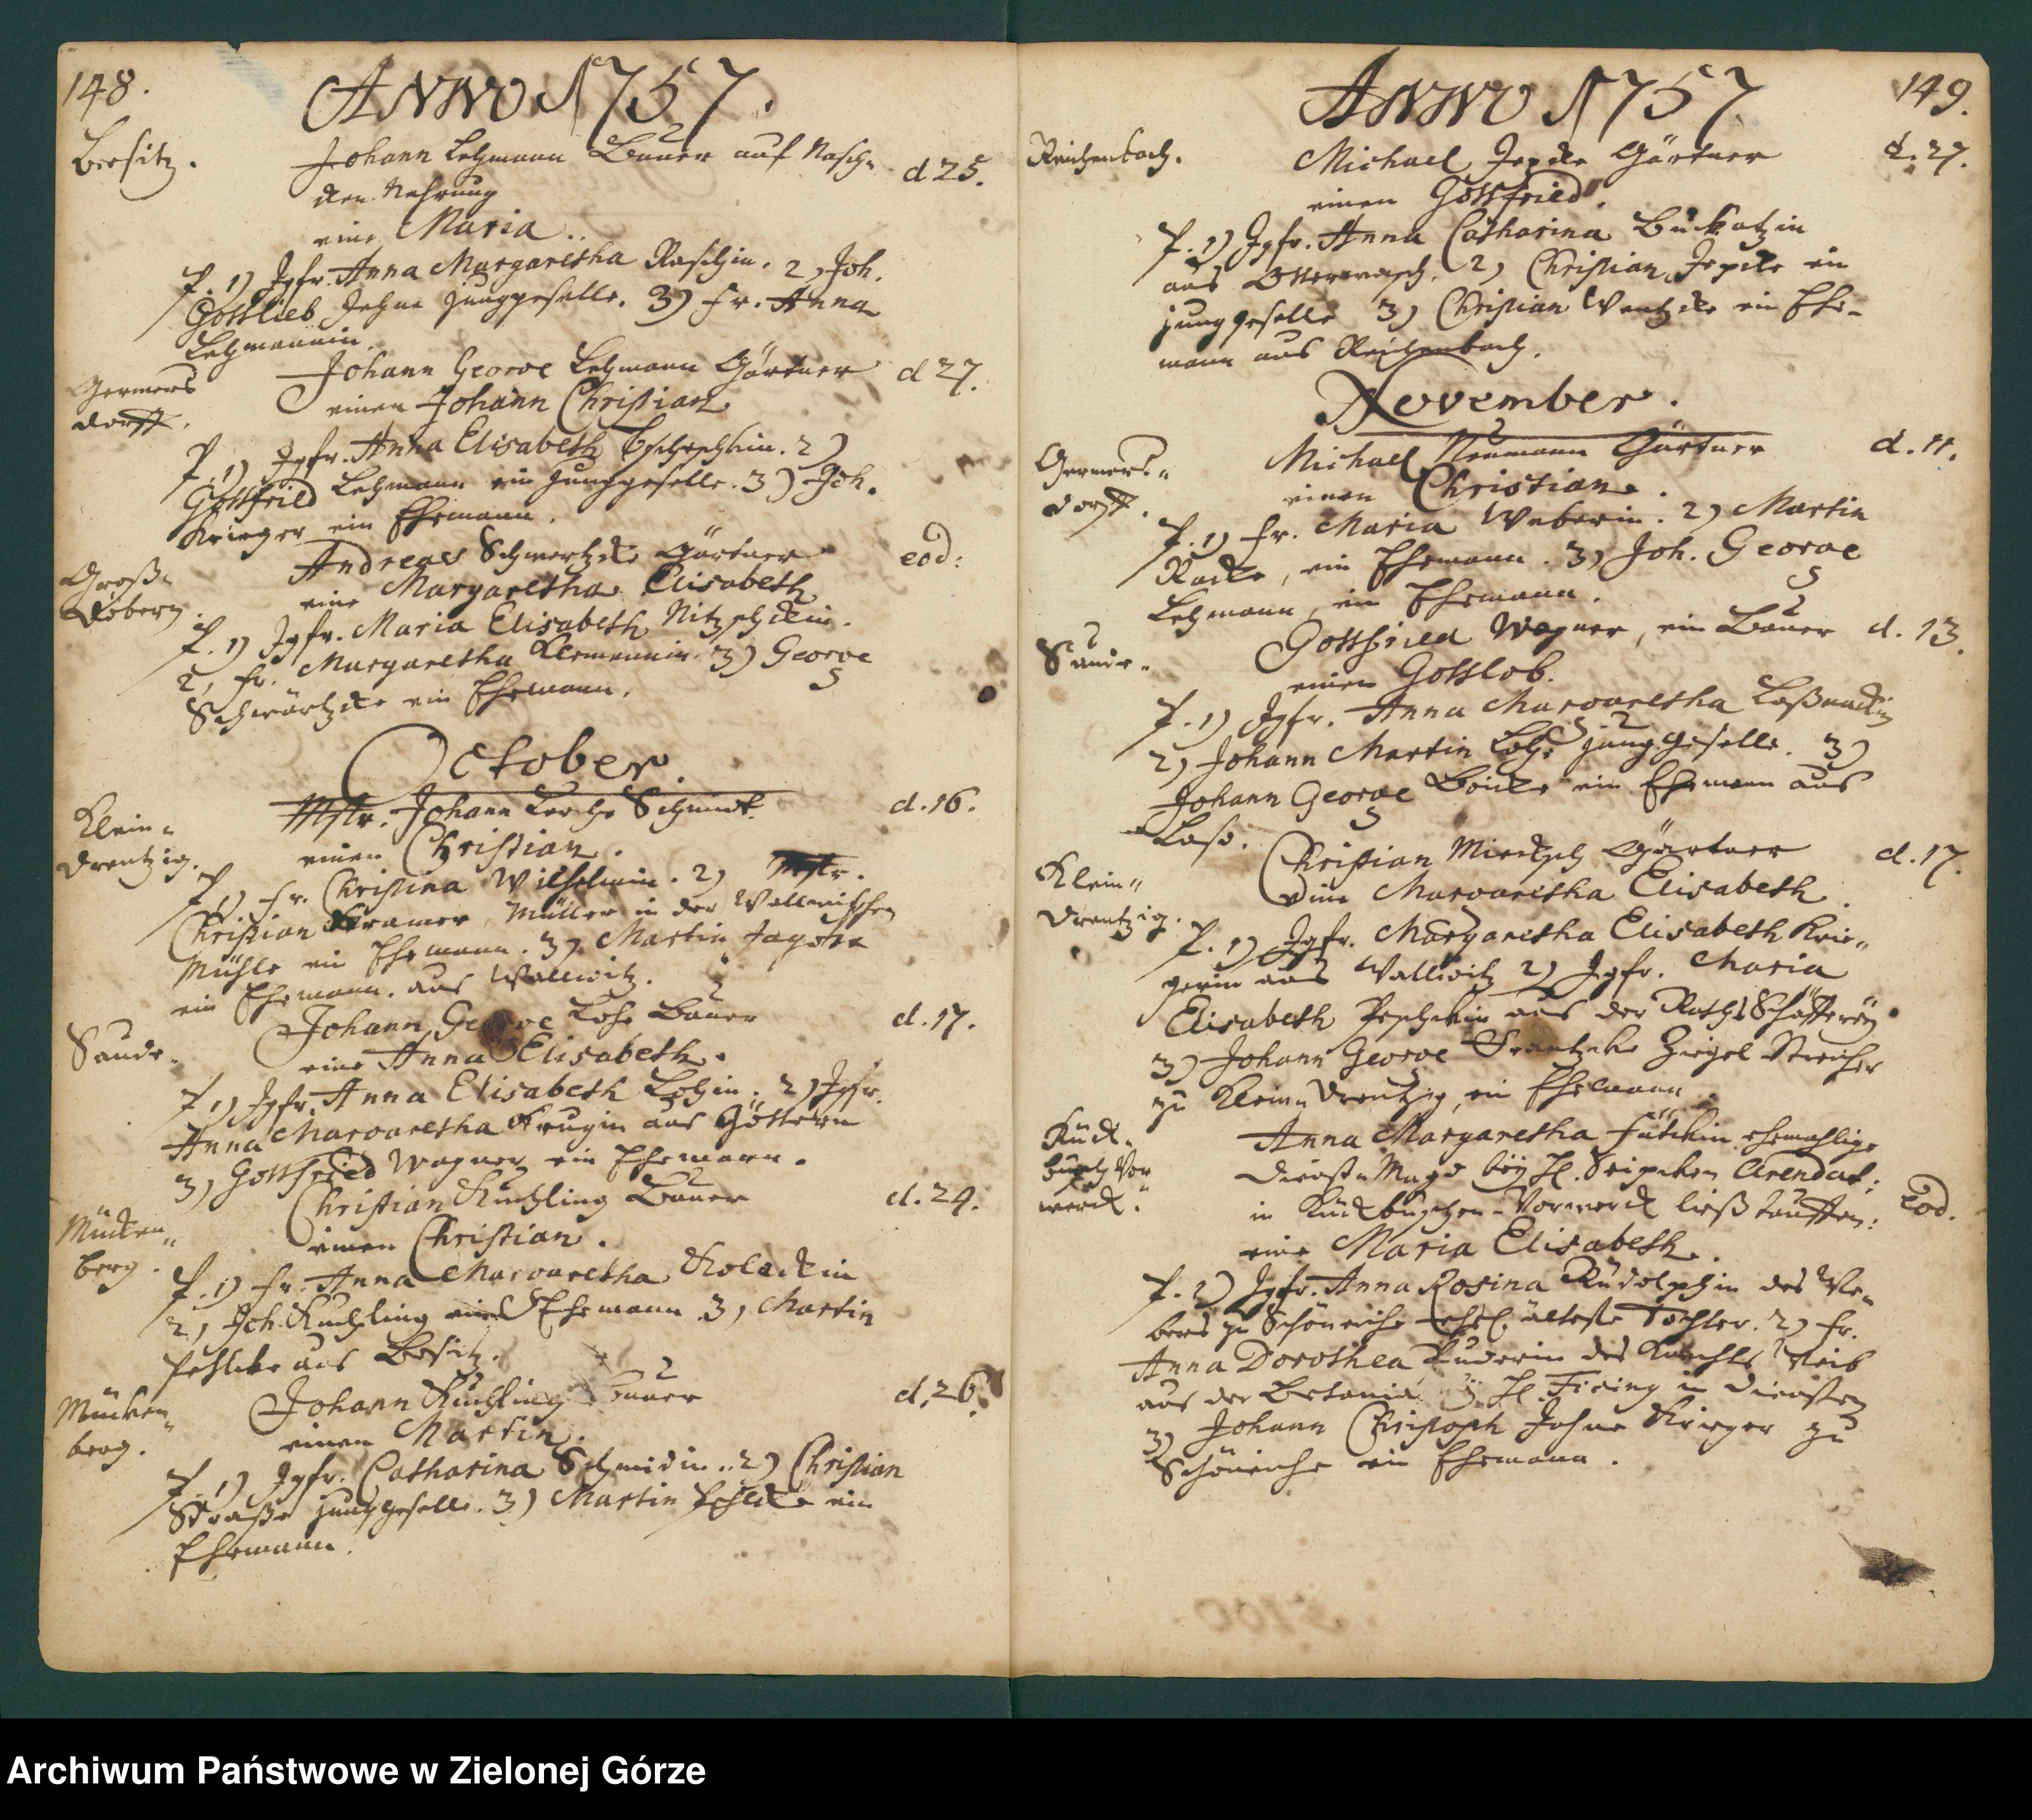 148.
ANNO 1757.
Bresitz. Johann Lehmann Bauer auf Nasch= d 25.
ken Nahrung
eine Maria.
P. 1) Jgfr. Anna Margaretha Raschin. 2, Joh.
Gottlieb Jehne Junggeselle. 3) Fr. Anna
Lehmannin.
Germers Johann George Lehmann Gärtner d 27.
dorff. einen Johann Christian
P. 1) Jgfr. Anna Elisabeth 2)
Gottfried Lehmann ein Junggeselle. 3) Joh.
Krieger ein Ehemann.
Groß= Andreas Schwartzcke Gärtner eod:
Dobern. eine Margaretha Elisabeth
P. 1) Jgfr. Maria Elisabeth Nitzschckin.
2, Fr. Margaretha 3) George
Schwartzcke ein Ehemann.
October.
Klein= Mstr. Johann Lerche Schmidt. d. 16.
Drentzig. einen Christian.
P. 1) Fr. Christina Wilhelmin. 2) Mstr.
Christian Kramer, Müller in der Wallwitschen
Mühle ein Ehemann. 3) Martin
ein Ehemann. aus Wallwitz.
Saude. Johann George Lohe Bauer d. 17.
eine Anna Elisabeth.
P 1) Jgfr. Anna Elisabeth Lohin. 2) Jgfr.
Anna Margaretha Krugin aus Göttern
3) Gottfried Wagner ein Ehemann.
Mücken= Christian Kuchling Bauer d. 24.
berg. einen Christian.
P. 1) Fr. Anna Margaretha
2, Joh. Kuchling ein Ehemann 3, Martin
Pehlcke aus Bresitz.
Mücken= Johann Kuchling Bauer d. 26.
berg. einen Martin.
P. 1) Jgfr. Catharina Schmidin. 2) Christian
Straße Junggeselle. 3) Martin Pehlcke ein
Ehemann.
149.
ANNO 1757
Reichenbach. Michael Jepcke Gärtner d. 27.
einen Gottfried.
P. 1) Jgfr. Anna Catharina Buckatzin
aus 2) Christian Jepcke ein
Junggeselle 3) Christian Wentzcke ein Ehe=
mann aus Reichenbach.
November.
Germers= Michael Neumann Gärtner d. 11.
dorff. einen Christian.
P. 1) Fr. Maria Weberin. 2) Martin
Racke, ein Ehemann. 3) Joh. George
Lehmann, ein Ehemann.
Saude. Gottfried Wagner, ein Bauer d. 13.
einen Gottlob.
P. 1) Jgfr. Anna Margaretha
2) Johann Martin Lohe Junggeselle. 3)
Johann George ein Ehemann aus
Laso.
Klein= Christian Gärtner d. 17.
Drentzig. Eine Margaretha Elisabeth.
P. 1) Jgfr. Margaretha Elisabeth Krie=
gerin aus Wallwitz 2) Jgfr. Maria
Elisabeth aus der Raths Schäfferey
3) Johann George Ziegel Streicher
zu Klein Drentzig, ein Ehemann.
Kück= Anna Margaretha ehemahlige
busch Vor Dienst=Magd bey H. Arendat: eod.
werck. in Kückbuschen=Vorwerck ließ tauffen:
eine Maria Elisabeth.
P. 1) Jgfr. Anna Rosina Rudolphin des We=
bers zu Schöneiche ehel. älteste Tochter. 2) Fr.
Anna Dorothea des Knechts Weib
aus der H. in Diensten
3) Johann Christoph Jehne Krieger zu
Schöneiche ein Ehemann.
Archiwum Państwowe w Zielonej Górze